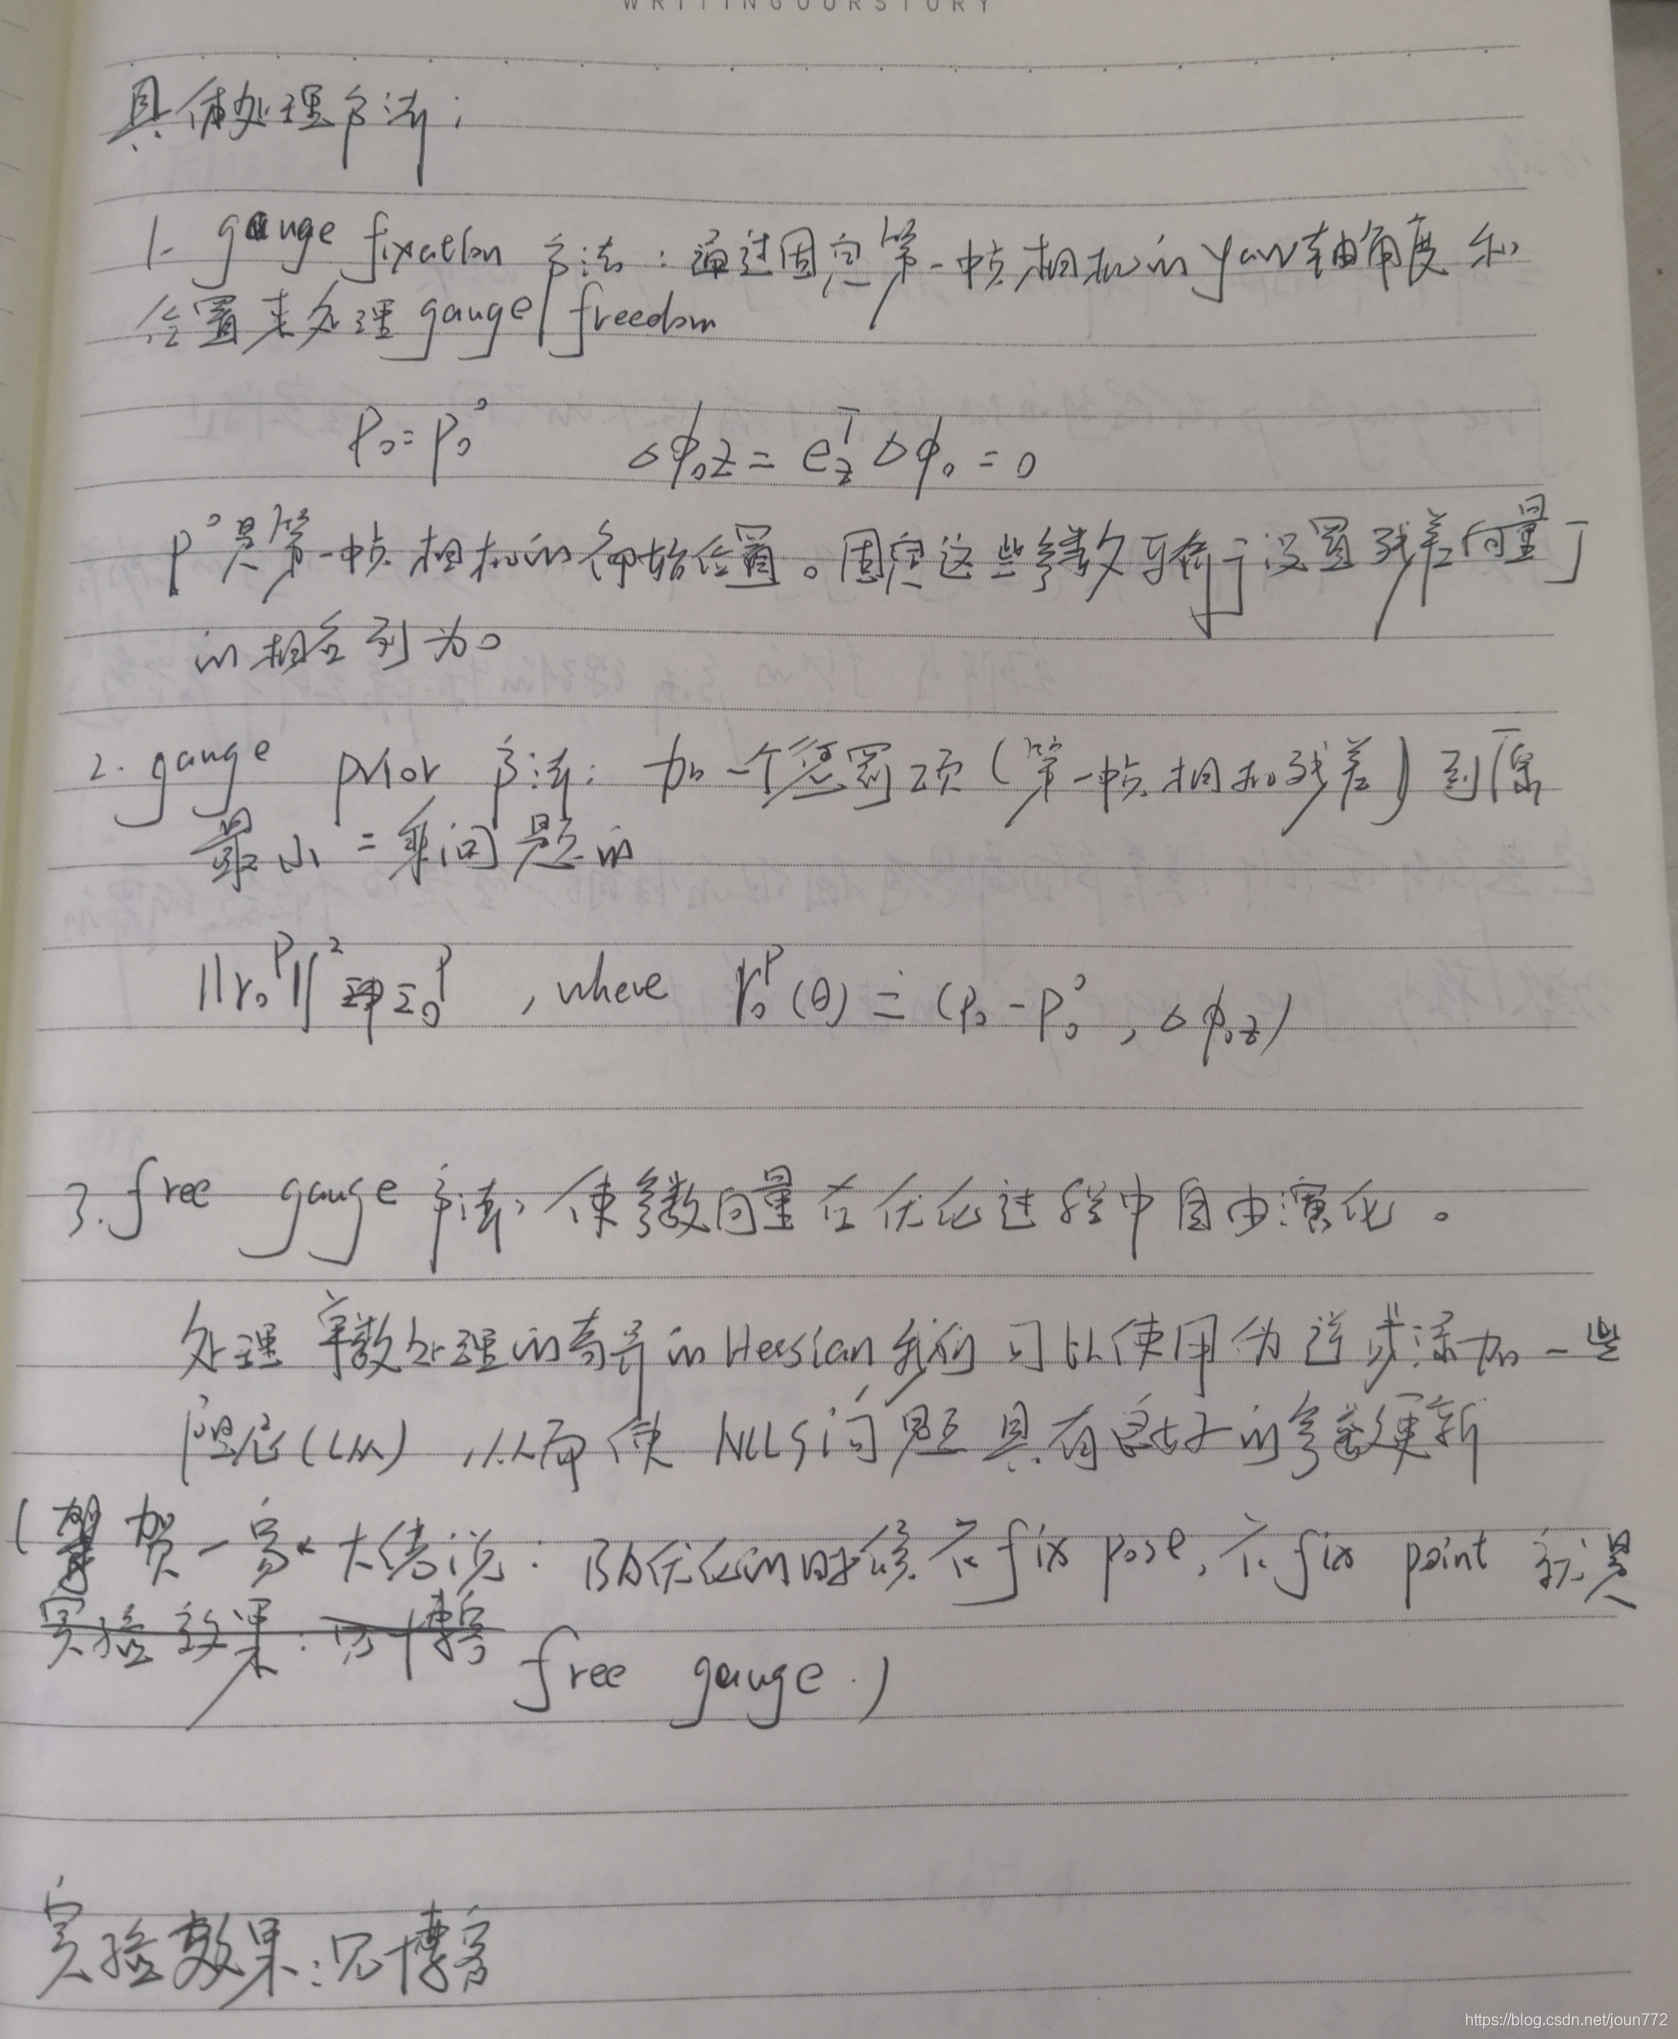 WRITINGOURSTORY
具体处理方法:
1. gauge fixation 方法:通过固定第一帧相机的yaw轴角度和
位置来处理gauge freedom
P₀=P₀⁰ Δϕ₀z = e_z^T Δϕ₀ = 0
P⁰是第一帧相机的初始位置。固定这些参数等价于设置残差向量J
的相应列为0
2. gauge prior 方法:加一个惩罚项(第一帧相机残差)到原
最小二乘问题的
||r₀^P||² Σ₀^P , where r₀^P(θ) = (P₀ - P₀⁰, Δϕ₀z)
3. free gauge 方法:使参数向量在优化过程中自由演化。
处理 参数处理的奇异的Hessian我们可以使用伪逆或添加一些
阻尼(LM),从而使 NLLS问题具有良好的参数更新
(贺一家大佬说:BA优化的时候不fix pose,不fix point 就是
实验效果:见博客
free gauge.)
实验效果:见博客
https://blog.csdn.net/joun772